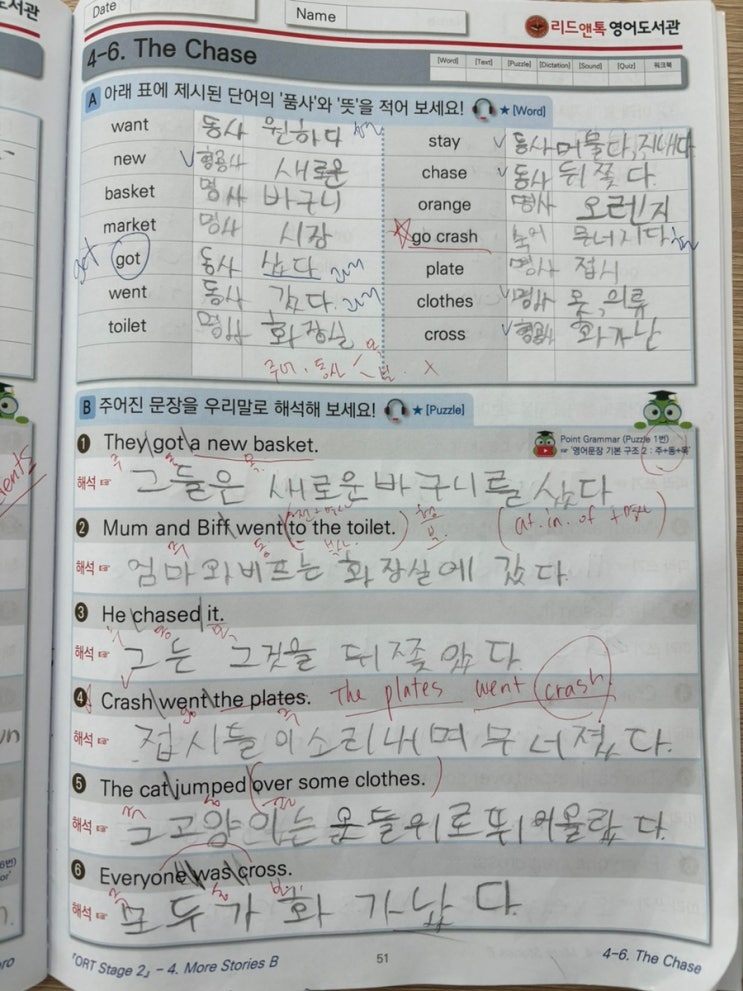 Date
Name
리드앤톡 영어도서관
4-6. The Chase
[Word] [Text] [Puzzle] [Dictation] [Sound] [Quiz] 워크북
A 아래 표에 제시된 단어의 '품사'와 '뜻'을 적어 보세요! ★ [Word]
want 동사 원하다
new 형용사 새로운
basket 명사 바구니
market 명사 시장
got 동사 샀다
went 동사 갔다
toilet 명사 화장실
stay 동사 머물다, 지내다
chase 동사 뒤쫓다
orange 명사 오렌지
go crash 숙어 무너지다
plate 명사 접시
clothes 명사 옷, 의류
cross 형용사 화가난
주어. 동사
B 주어진 문장을 우리말로 해석해 보세요! ★ [Puzzle]
1 They got a new basket.
Point Grammar (Puzzle 1번)
☞ '영어문장 기본 구조 2 : 주+동+목'
해석 ☞ 그들은 새로운 바구니를 샀다
2 Mum and Biff went to the toilet.
(at. in. of + 명사)
해석 ☞ 엄마와 비프는 화장실에 갔다.
3 He chased it.
해석 ☞ 그는 그것을 뒤쫓았다.
4 Crash went the plates. The plates went crash
해석 ☞ 접시들이 소리내며 무너졌다.
5 The cat jumped over some clothes.
해석 ☞ 그 고양이는 옷들 위로 뛰어올랐다.
6 Everyone was cross.
해석 ☞ 모두가 화가났다.
『ORT Stage 2』 - 4. More Stories B
51
4-6. The Chase